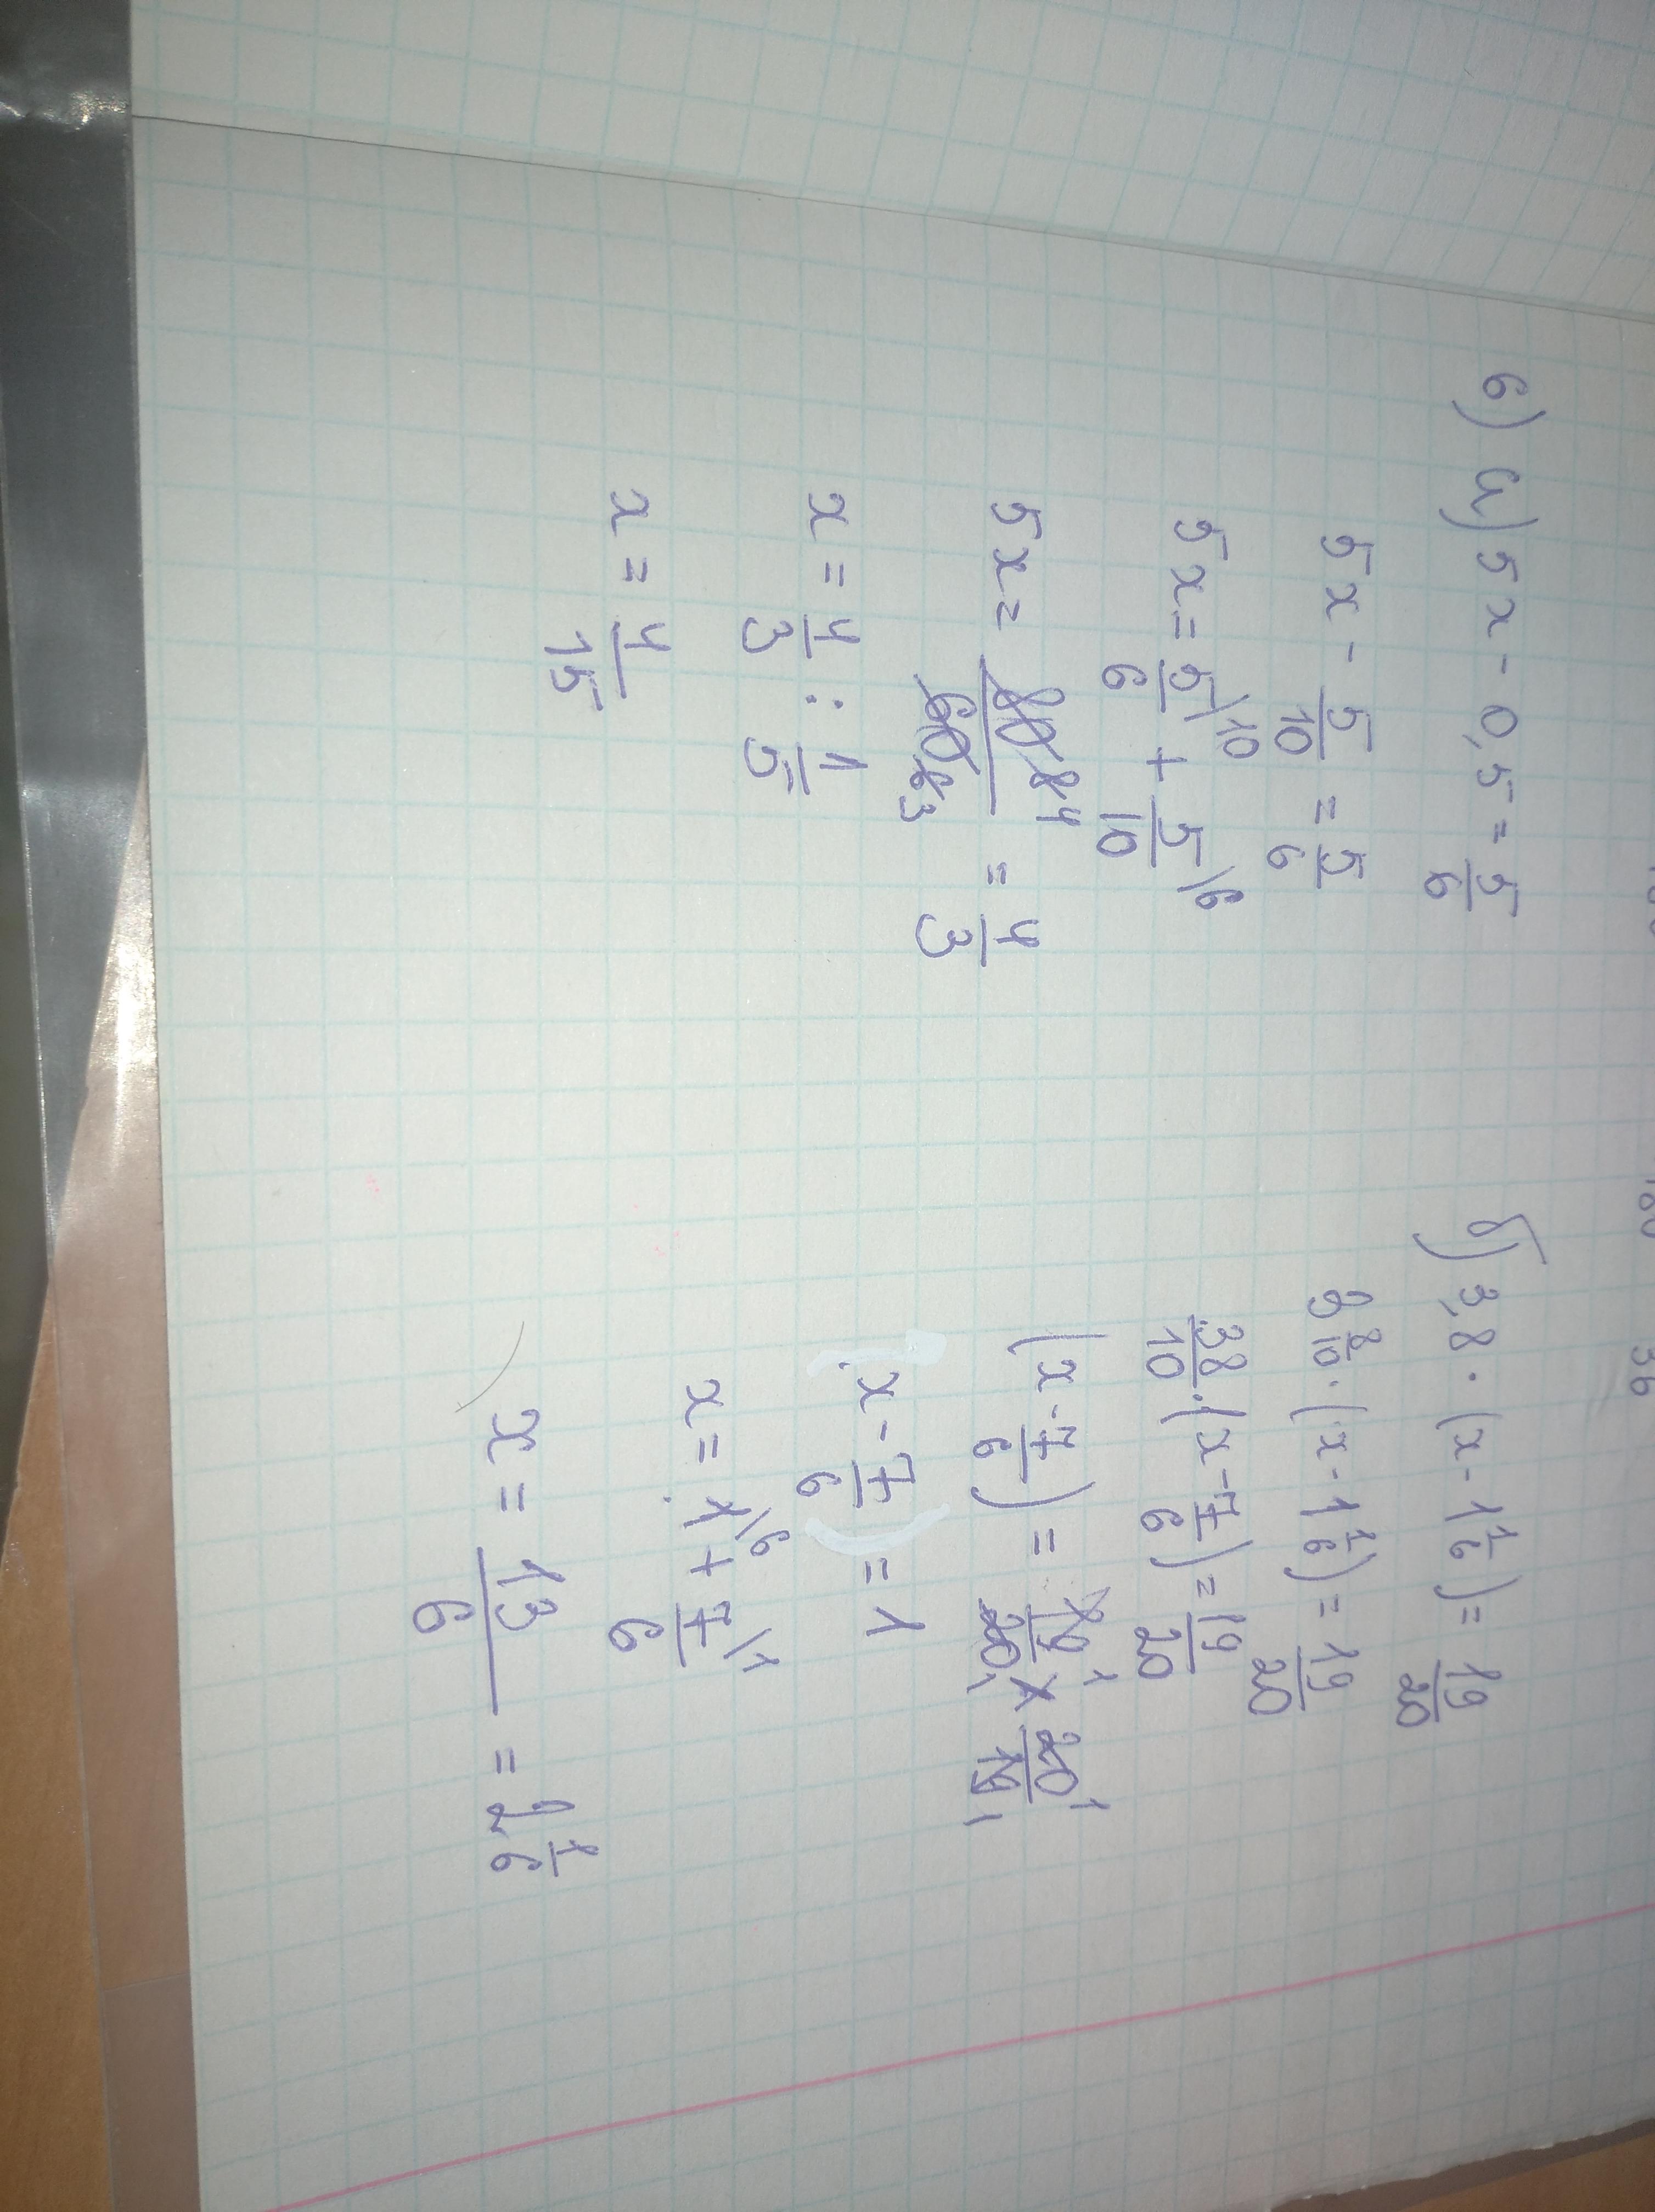 180 36
6) а) 5x - 0,5 = 5/6
5x - 5/10 = 5/6
5x = 5/6\10 + 5/10\6
5x = 80 8 4/60 6 3 = 4/3
x = 4/3 : 1/5
x = 4/15
б) 3,8 · (x - 1 1/6) = 19/20
3 8/10 · (x - 1 1/6) = 19/20
38/10 · (x - 7/6) = 19/20
(x - 7/6) = 19 1/20 1 × 20 1/19 1
x - 7/6 = 1
x = 1\6 + 7/6\1
x = 13/6 = 2 1/6